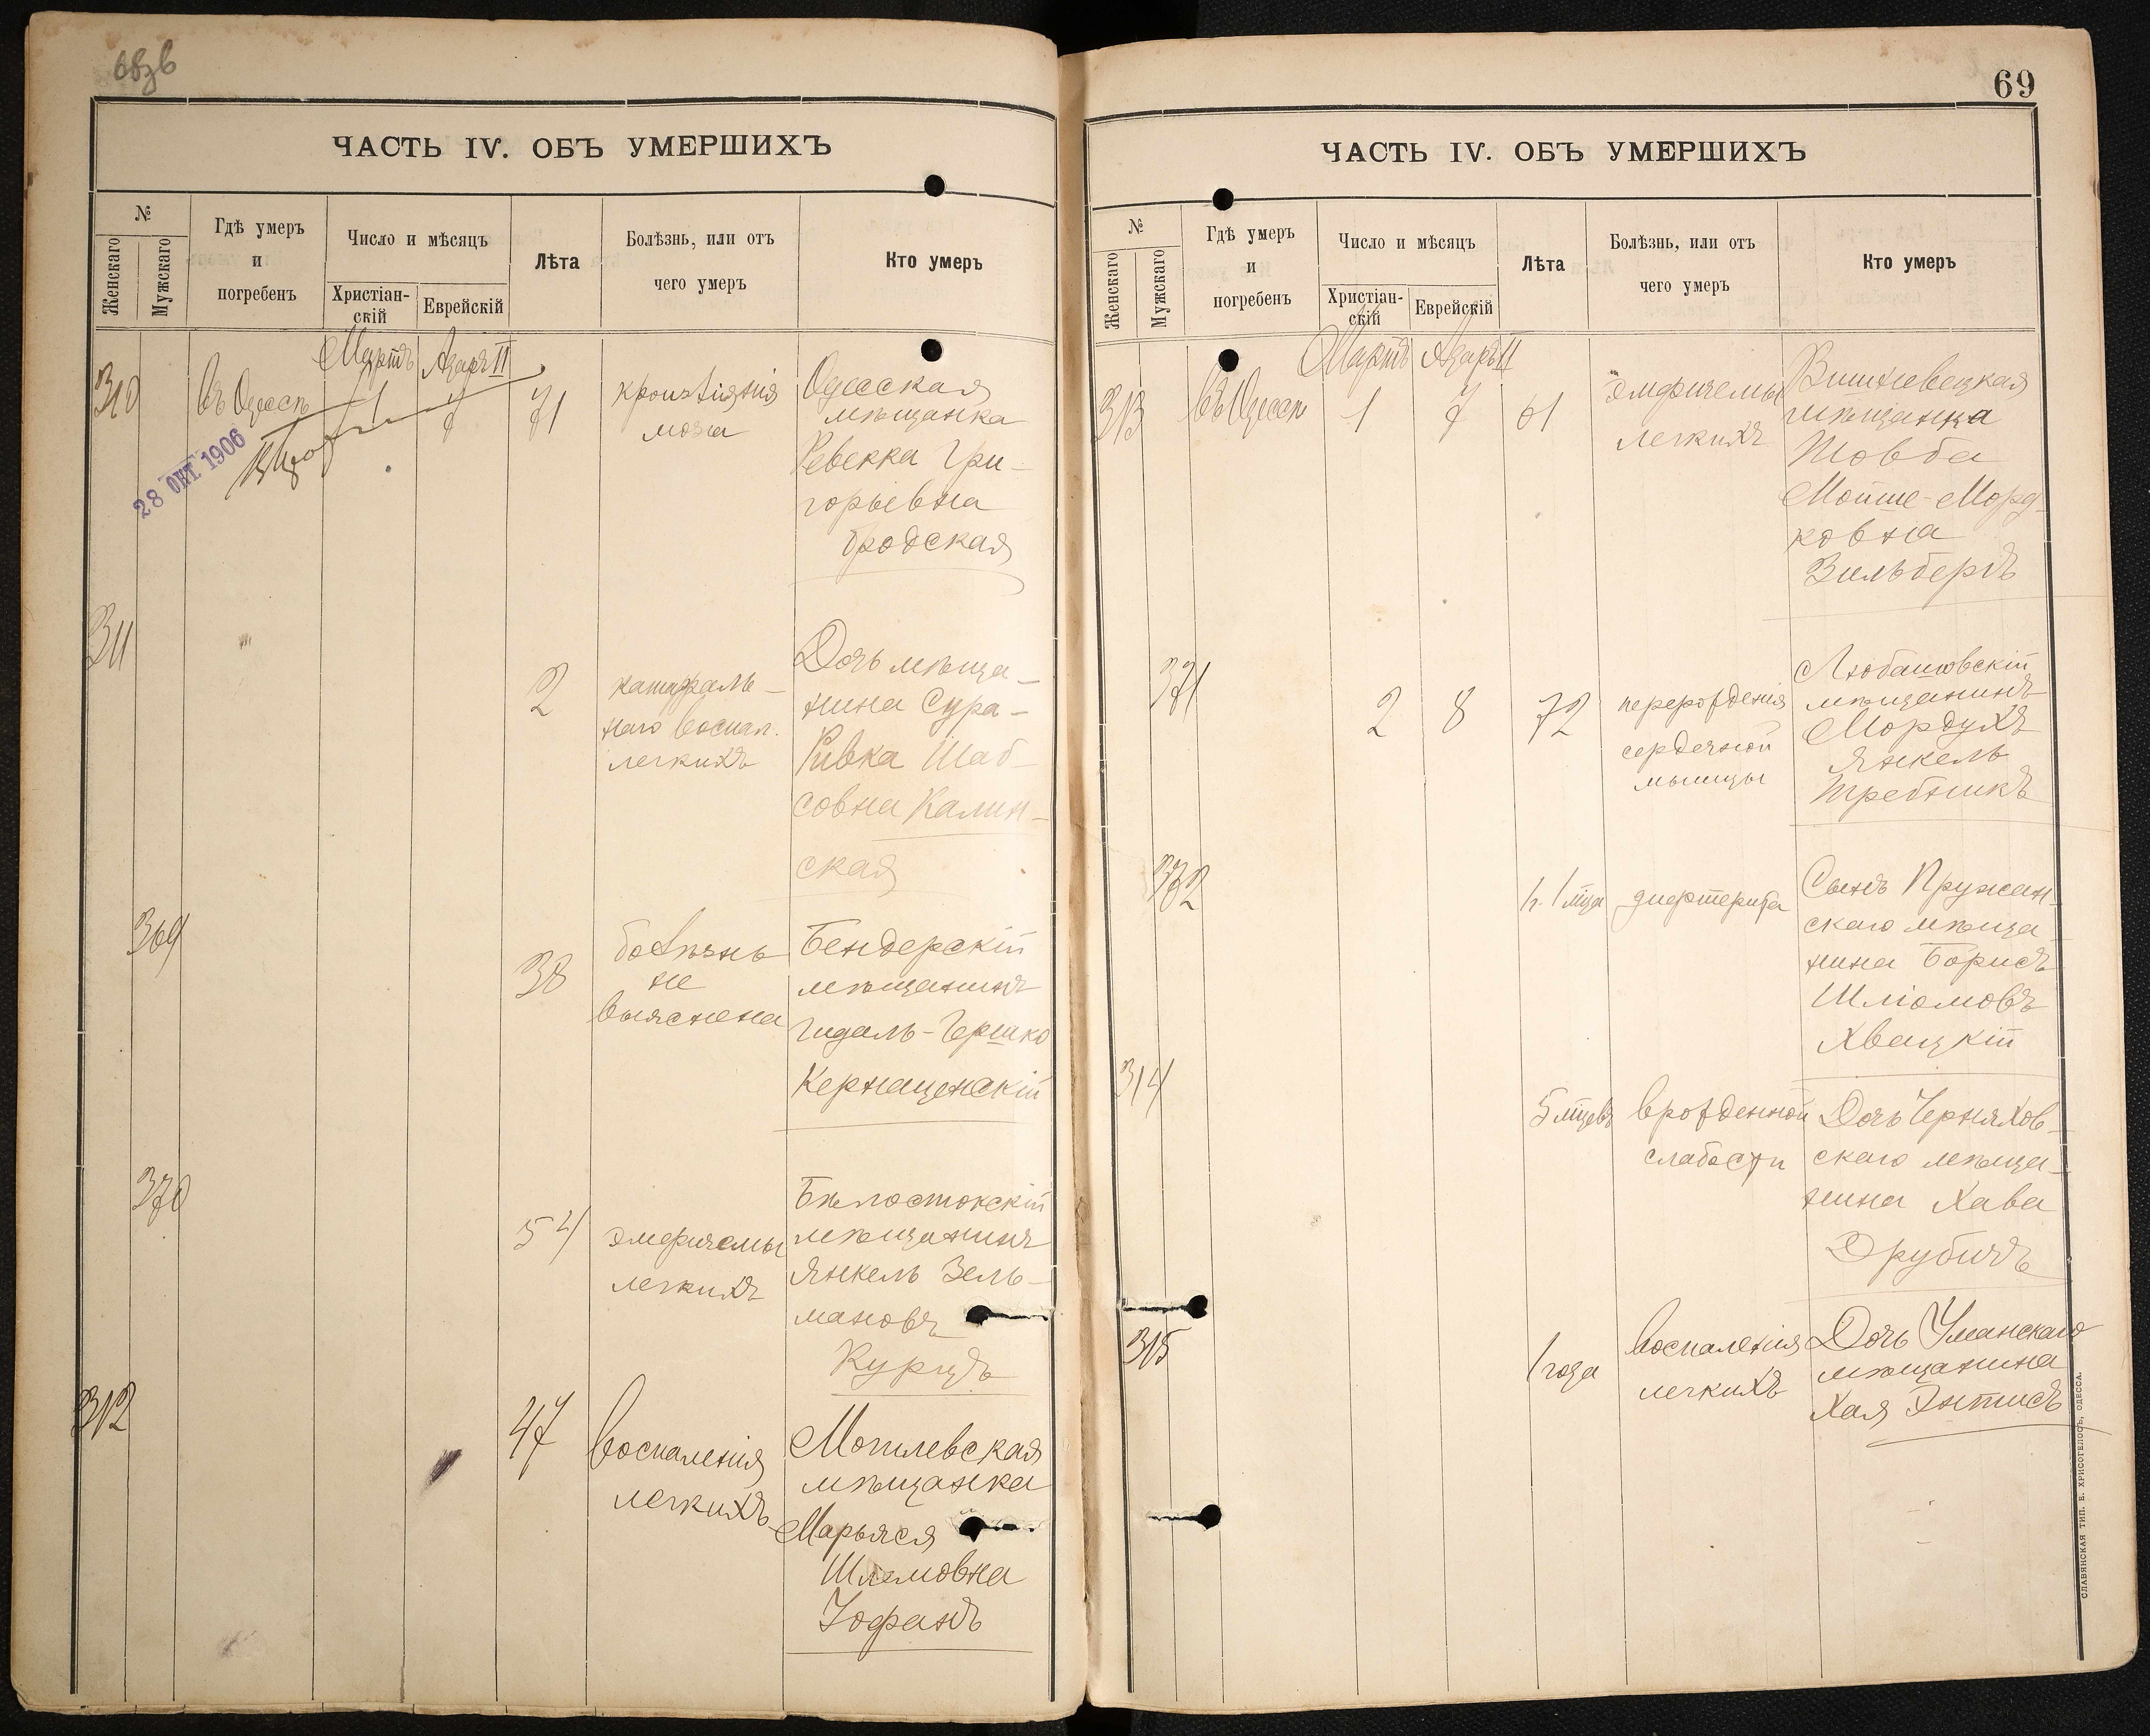 68зв
ЧАСТЬ IV. ОБЪ УМЕРШИХЪ
№
Женскаго
Мужскаго
Гдѣ умеръ
и
погребенъ
Число и мѣсяцъ
Христіан-
скій
Еврейскій
Лѣта
Болѣзнь, или отъ
чего умеръ
Кто умеръ
Мартъ Адаръ II
310
въ Одессѣ
1
7
71
кровоизліянія
мозга
Одесская
мѣщанка
Ревекка Гри-
горьевна
Бродская
28 ОКТ 1906
311
2
катарраль-
наго воспал.
легкихъ
Дочь мѣща-
нина Сура-
Ривка Шаб-
совна Калин-
ская
369
38
болѣзнь
не
выяснена
Бендерскій
мѣщанинъ
Гидаль-Гершко
370
54
эмфиземы
легкихъ
Бѣлостокскій
мѣщанинъ
Янкель Зель-
мановъ
Курцъ
312
47
воспаленія
легкихъ
Могилевская
мѣщанка
Марьяся
Шлемовна
69
ЧАСТЬ IV. ОБЪ УМЕРШИХЪ
№
Женскаго
Мужскаго
Гдѣ умеръ
и
погребенъ
Число и мѣсяцъ
Христіан-
скій
Еврейскій
Лѣта
Болѣзнь, или отъ
чего умеръ
Кто умеръ
Мартъ Адаръ II
313
въ Одессѣ
1
7
61
эмфиземы
легкихъ
Вишневецкая
мѣщанка
Товба
Мойше-Морд-
ковна
Зильбергъ
371
2
8
72
перерожденія
сердечной
мышцы
Любашовскій
мѣщанинъ
Мордухъ
Янкель
Требникъ
372
дифтерита
Сынъ Пружан-
скаго мѣща-
нина Борисъ
Шліомовъ
Хвацкій
314
5 мцевъ
врожденной
слабости
Дочь Черняхов-
скаго мѣща-
нина Хава
Друбичъ
315
1 года
воспаленія
легкихъ
Дочь Уманскаго
мѣщанина
Хая Энтисъ
СЛАВЯНСКАЯ ТИП. Е. ХРИСОГЕЛОСЪ, ОДЕССА.